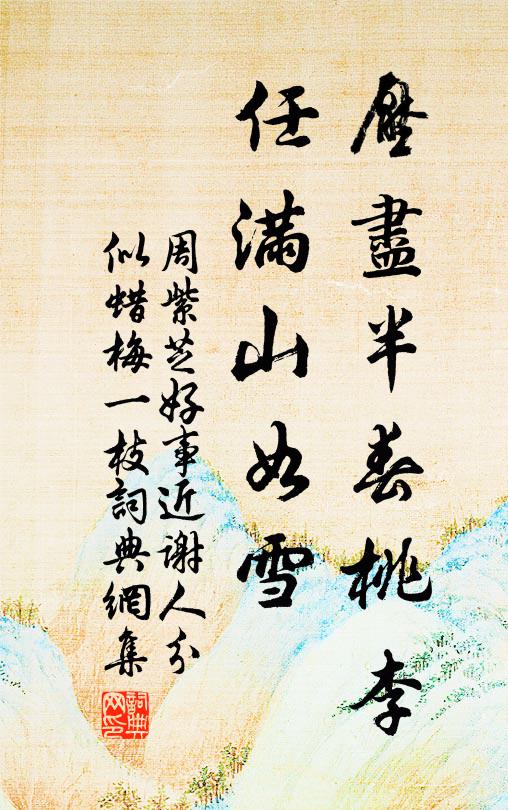 壓盡半春桃李
任滿山如雪
周紫芝好事近謝人分
似蜡梅一枝詞典網集
詞典
网印